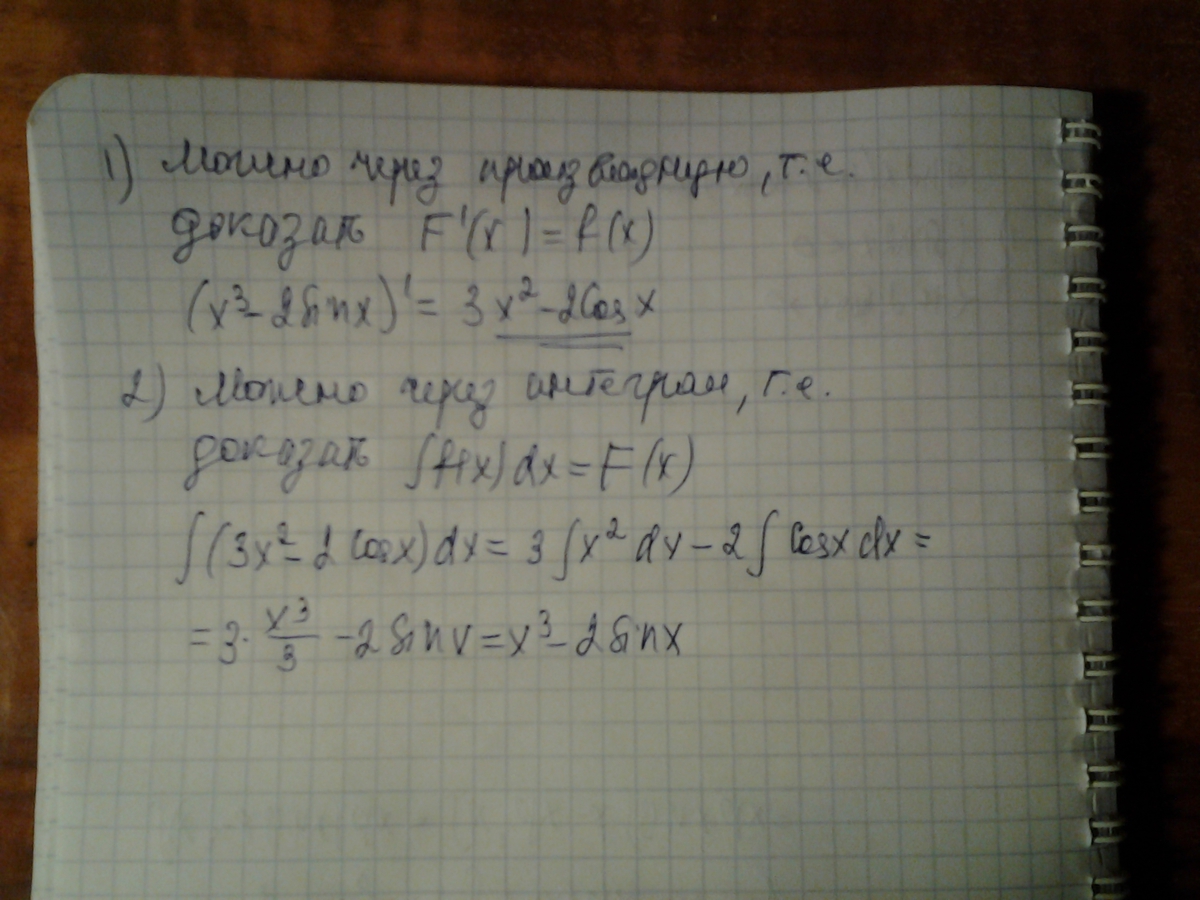 1) Можно через производную, т.е.
доказать F'(x) = f(x)
(x³ - 2sinx)' = 3x² - 2Cosx
2) Можно через интеграл, т.е.
доказать ∫f(x)dx = F(x)
∫(3x² - 2Cosx)dx = 3∫x²dx - 2∫Cosxdx =
= 3·x³/3 - 2sinx = x³ - 2sinx